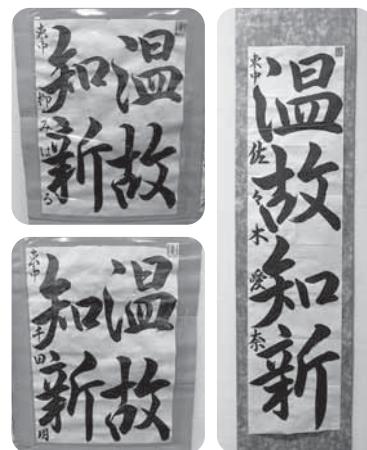 温故
知新
東中 柳みはる
温故
知新
東中 千田明
温故知新
東中 佐々木愛奈